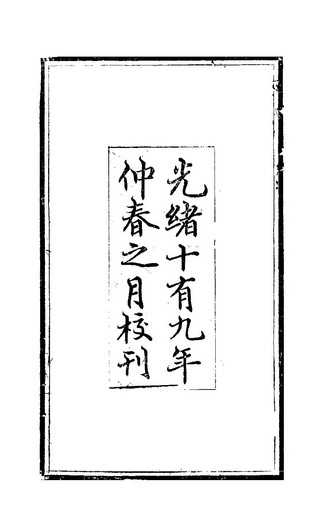 光緒十有九年
仲春之月校刊